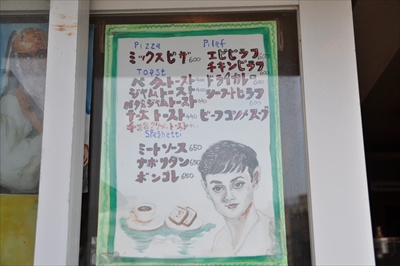 Pizza
ミックスピザ 600
Toast
バタートースト
ジャムトースト
バタジャムトースト 440
チーズトースト 440
トースト 440
Spaghetti
ミートソース 650
ナポリタン 650
ボンゴレ 650
Pilef
エビピラフ 600
チキンピラフ
ドライカレー
シーフードピラフ
ビーフコンソメスープ